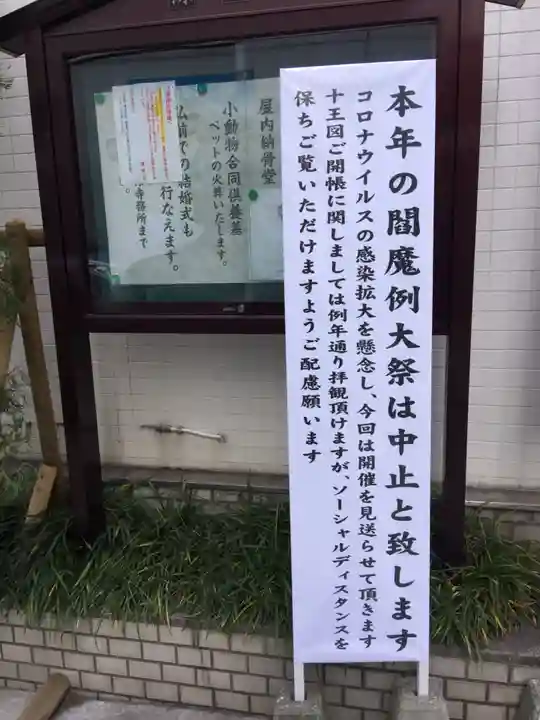 本年の閻魔例大祭は中止と致します
コロナウイルスの感染拡大を懸念し、今回は開催を見送らせて頂きます
十王図ご開帳に関しましては例年通り拝観頂けますが、ソーシャルディスタンスを
保ちご覧いただけますようご配慮願います
屋内納骨堂
小動物合同供養墓
ペットの火葬いたします。
仏前での結婚式も
行なえます。
寺務所まで